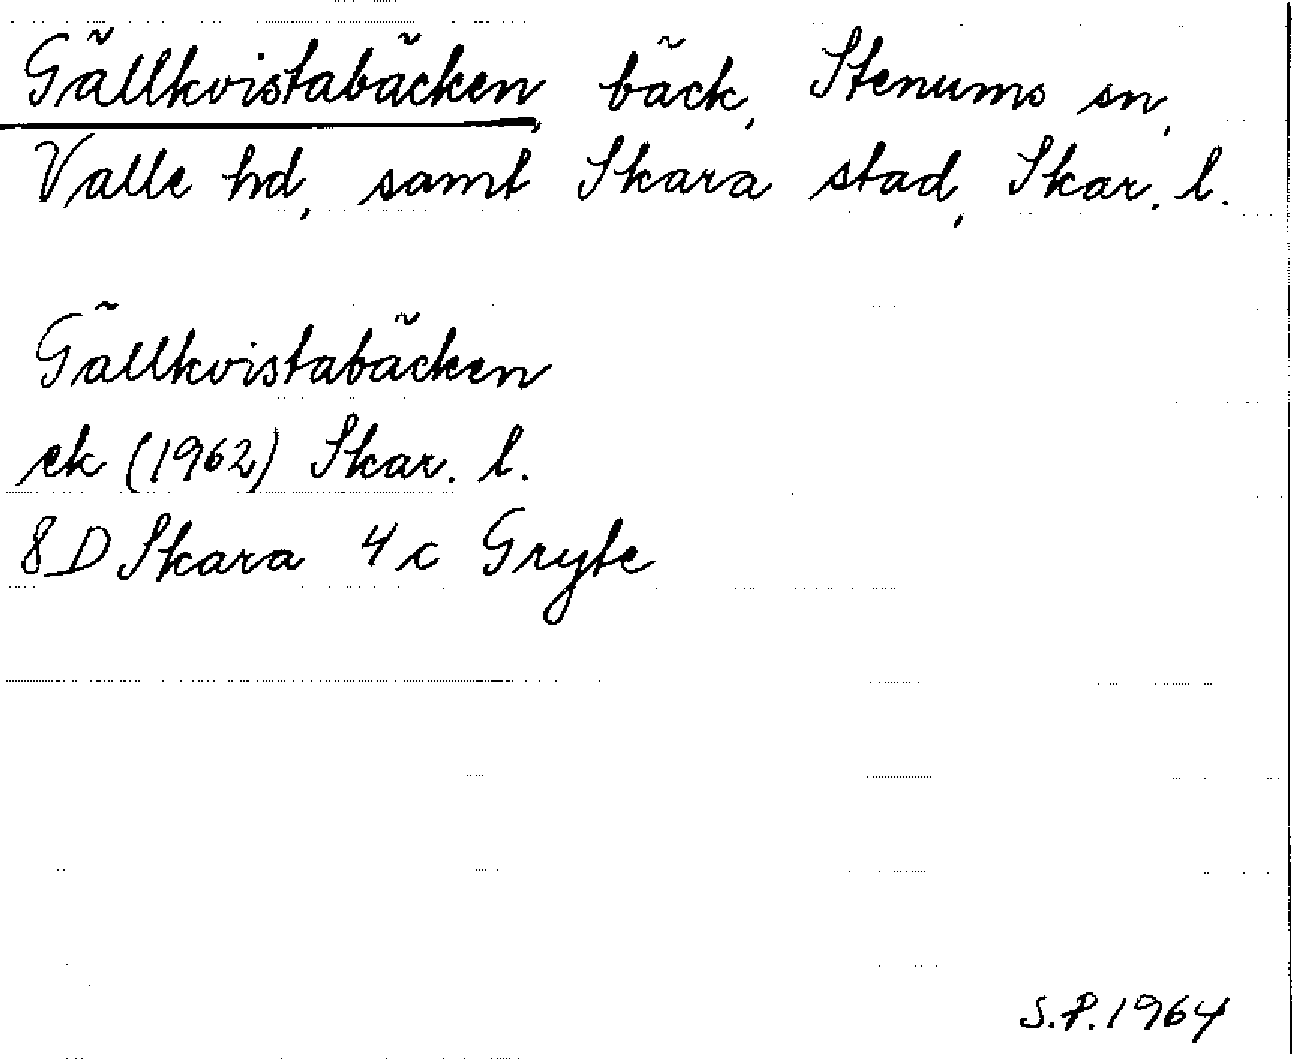 Gällkvistabäcken, bäck, Stenums sn,
Valle hd, samt Skara stad, Skar. l.
Gällkvistabäcken
ek (1962) Skar. l.
8D Skara 4c Gryte
S.P. 1964